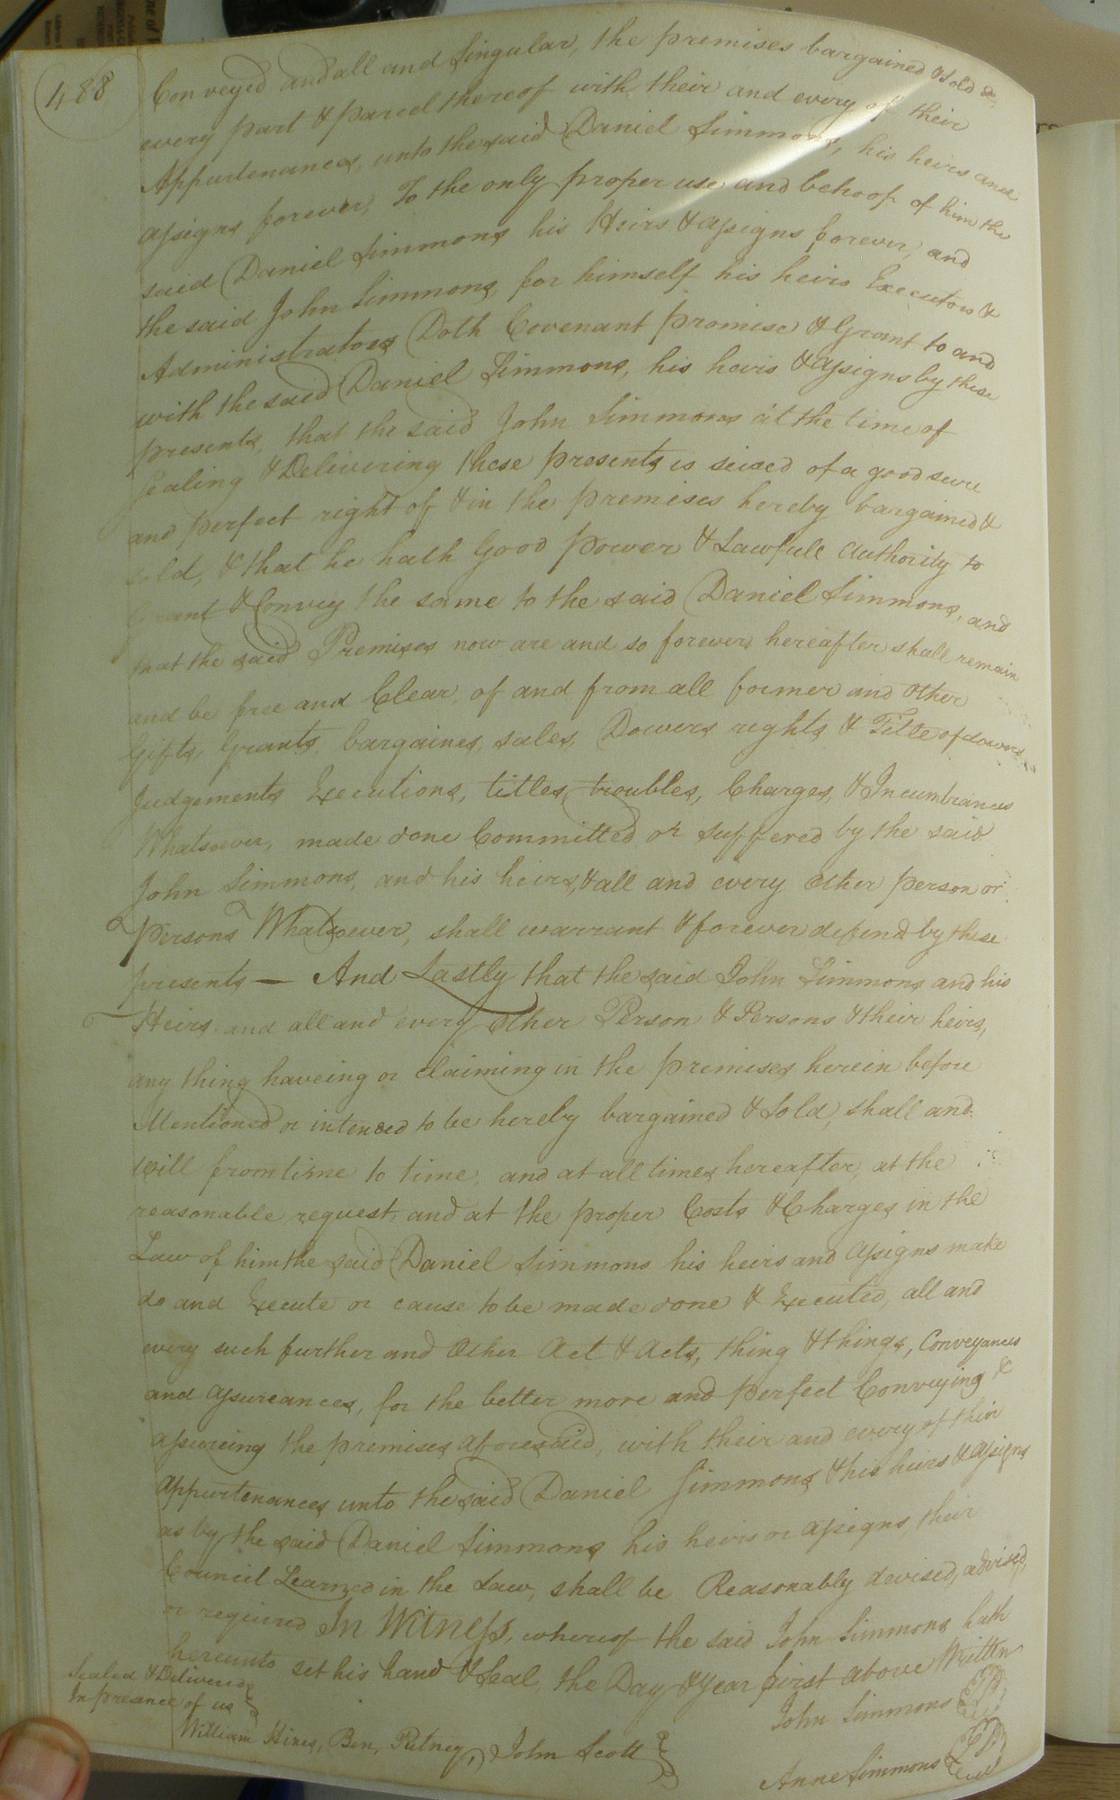 488
Conveyed and all and Singular, the premises bargained & Sold &
every part & parcel thereof with their and every of their
Appurtenances, unto the said Daniel Simmons, his heirs and
assigns forever, To the only proper use and behoof of him the
said Daniel Simmons his Heirs & assigns forever, and
the said John Simmons, for himself his heirs Executors &
Administrators Doth Covenant promise & Grant to and
with the said Daniel Simmons, his heirs & assigns by these
presents, that the said John Simmons at the time of
Sealing & Delivering these presents is seised of a good sure
and perfect right of & in the premises hereby bargained &
Sold, & that he hath Good Power & Lawfull Authority to
Grant & Convey the same to the said Daniel Simmons, and
that the said Premises now are and so forever hereafter shall remain
and be free and Clear, of and from all former and other
Gifts, Grants, bargaines, sales, Dowers rights & Title of dowers
Judgements Executions, titles, troubles, Charges, & Incumbrances
Whatsoever, made done Committed or suffered by the said
John Simmons, and his heirs, & all and every other person or
Persons Whatsoever, shall warrant & forever defend by these
presents — And Lastly that the said John Simmons and his
Heirs and all and every other Person & Persons & their heirs,
any thing haveing or Claiming in the premises herein before
Mentioned or intended to be hereby bargained & Sold, shall and
will from time to time, and at all times hereafter, at the
reasonable request, and at the proper Costs & Charges in the
Law of him the said Daniel Simmons his heirs and assigns make
do and Execute or cause to be made done & Executed, all and
every such further and Other Act & Acts, thing & things, Conveyances
and assureances, for the better more and perfect Conveying &
assureing the premises aforesaid, with their and every of their
Appurtenances unto the said Daniel Simmons & his heirs & assigns
as by the said Daniel Simmons his heirs or assigns, their
Council Learned in the Law, shall be Reasonably devised, advised,
or required In Witness, whereof the said John Simmons hath
hereunto set his hand & Seal, the Day & year first above Written
Sealed & Delivered
In presance of us
John Simmons LS
William Hines, Ben, Putney, John Scott
Anne Simmons LS